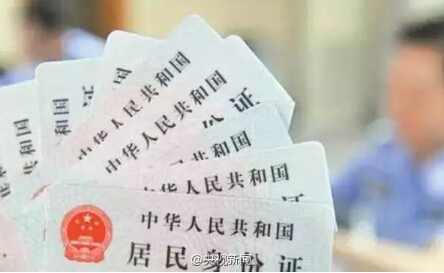 中华人民共和国
中华人民共和国
中华人民共和国
份证
中华人民共和国
中华人民共和国
居民身份证
@央视新闻